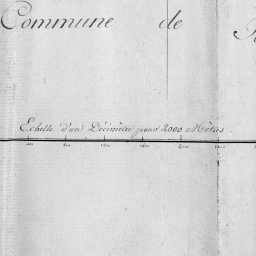 Commune de
Echelle d'un Décimètre pour 2000 Mètres.